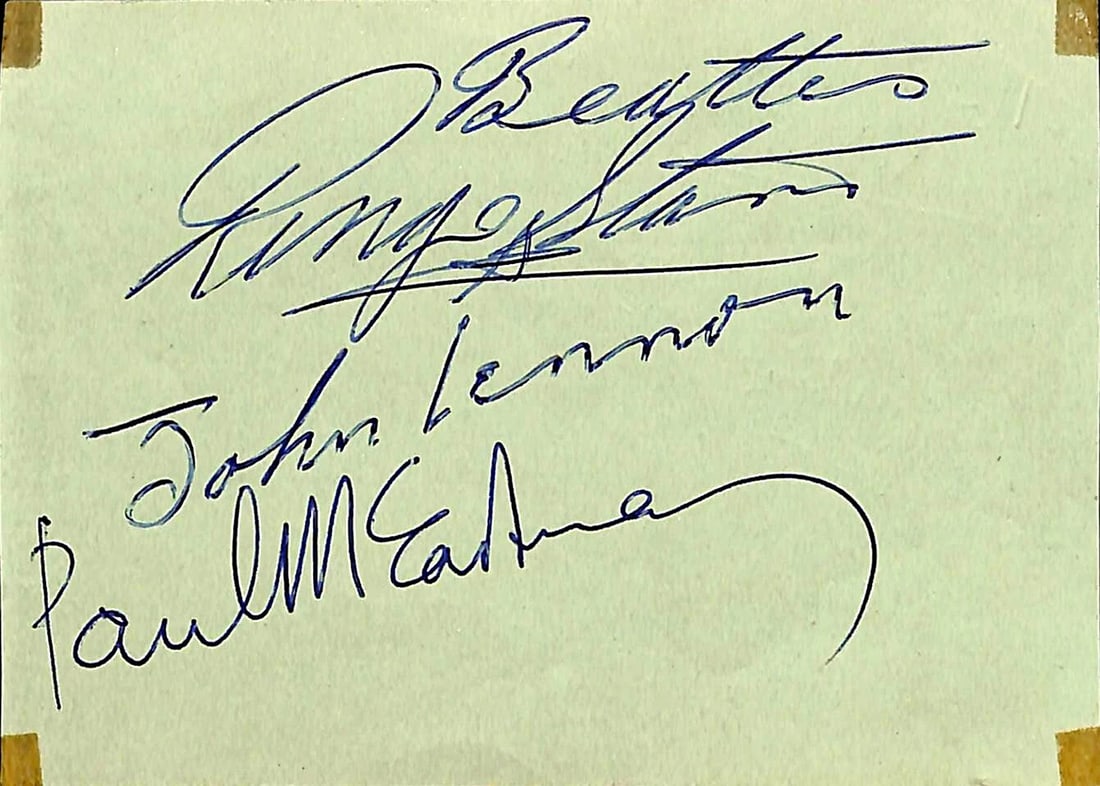 Beatles
Ringo Starr
John Lennon
Paul McCartney